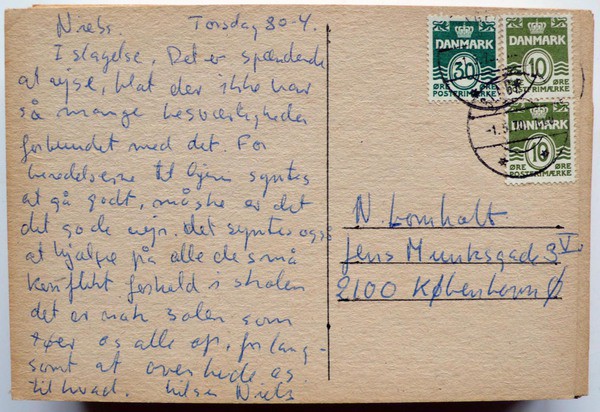 Niels. Torsdag 30-4.
I slagelse. Det er spændende
at rejse, blot der ikke var
så mange besværligheder
forbundet med det. For
beredelserne til Hjem syntes
at gå godt, måske er det
det gode vejr. det syntes også
at hjælpe på alle de små
konflikt forhold i skolen
det er nok solen som
tøer os alle op, for lang-
somt at overbevise os
til hvad. hilsen Niels
DANMARK
30
ØRE
POSTFRIMÆRKE
DANMARK
10
ØRE
POSTFRIMÆRKE
DANMARK
10
ØRE
POSTFRIMÆRKE
-1.5.70
N. Lomholt
Jens Munksgade 3 V.
2100 København Ø